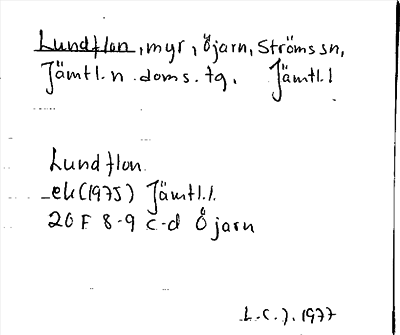 Lundflon, myr, Öjarn, Ströms sn,
Jämtl. n. doms. tg. Jämtl. l
Lundflon
ek (1975) Jämtl. l.
20 F 8-9 c-d Öjarn
L.C.J. 1977